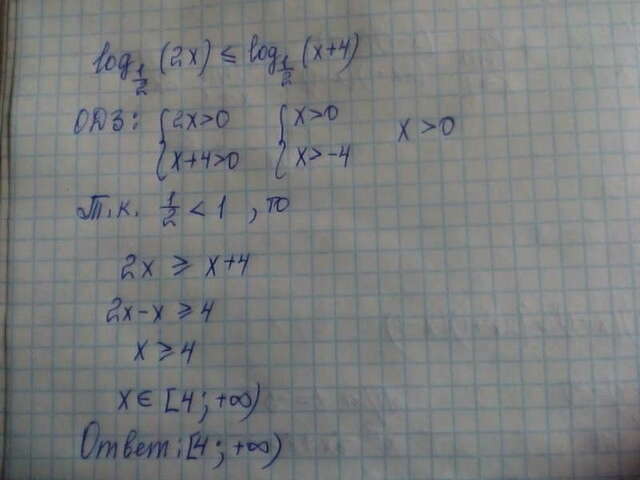 log_{1/2} (2x) ≤ log_{1/2} (x+4)
ОДЗ: { 2x>0 { x>0 x>0
x+4>0 x>-4
Т.к. 1/2 < 1, то
2x ≥ x+4
2x-x ≥ 4
x ≥ 4
x ∈ [4; +∞)
Ответ: [4; +∞)